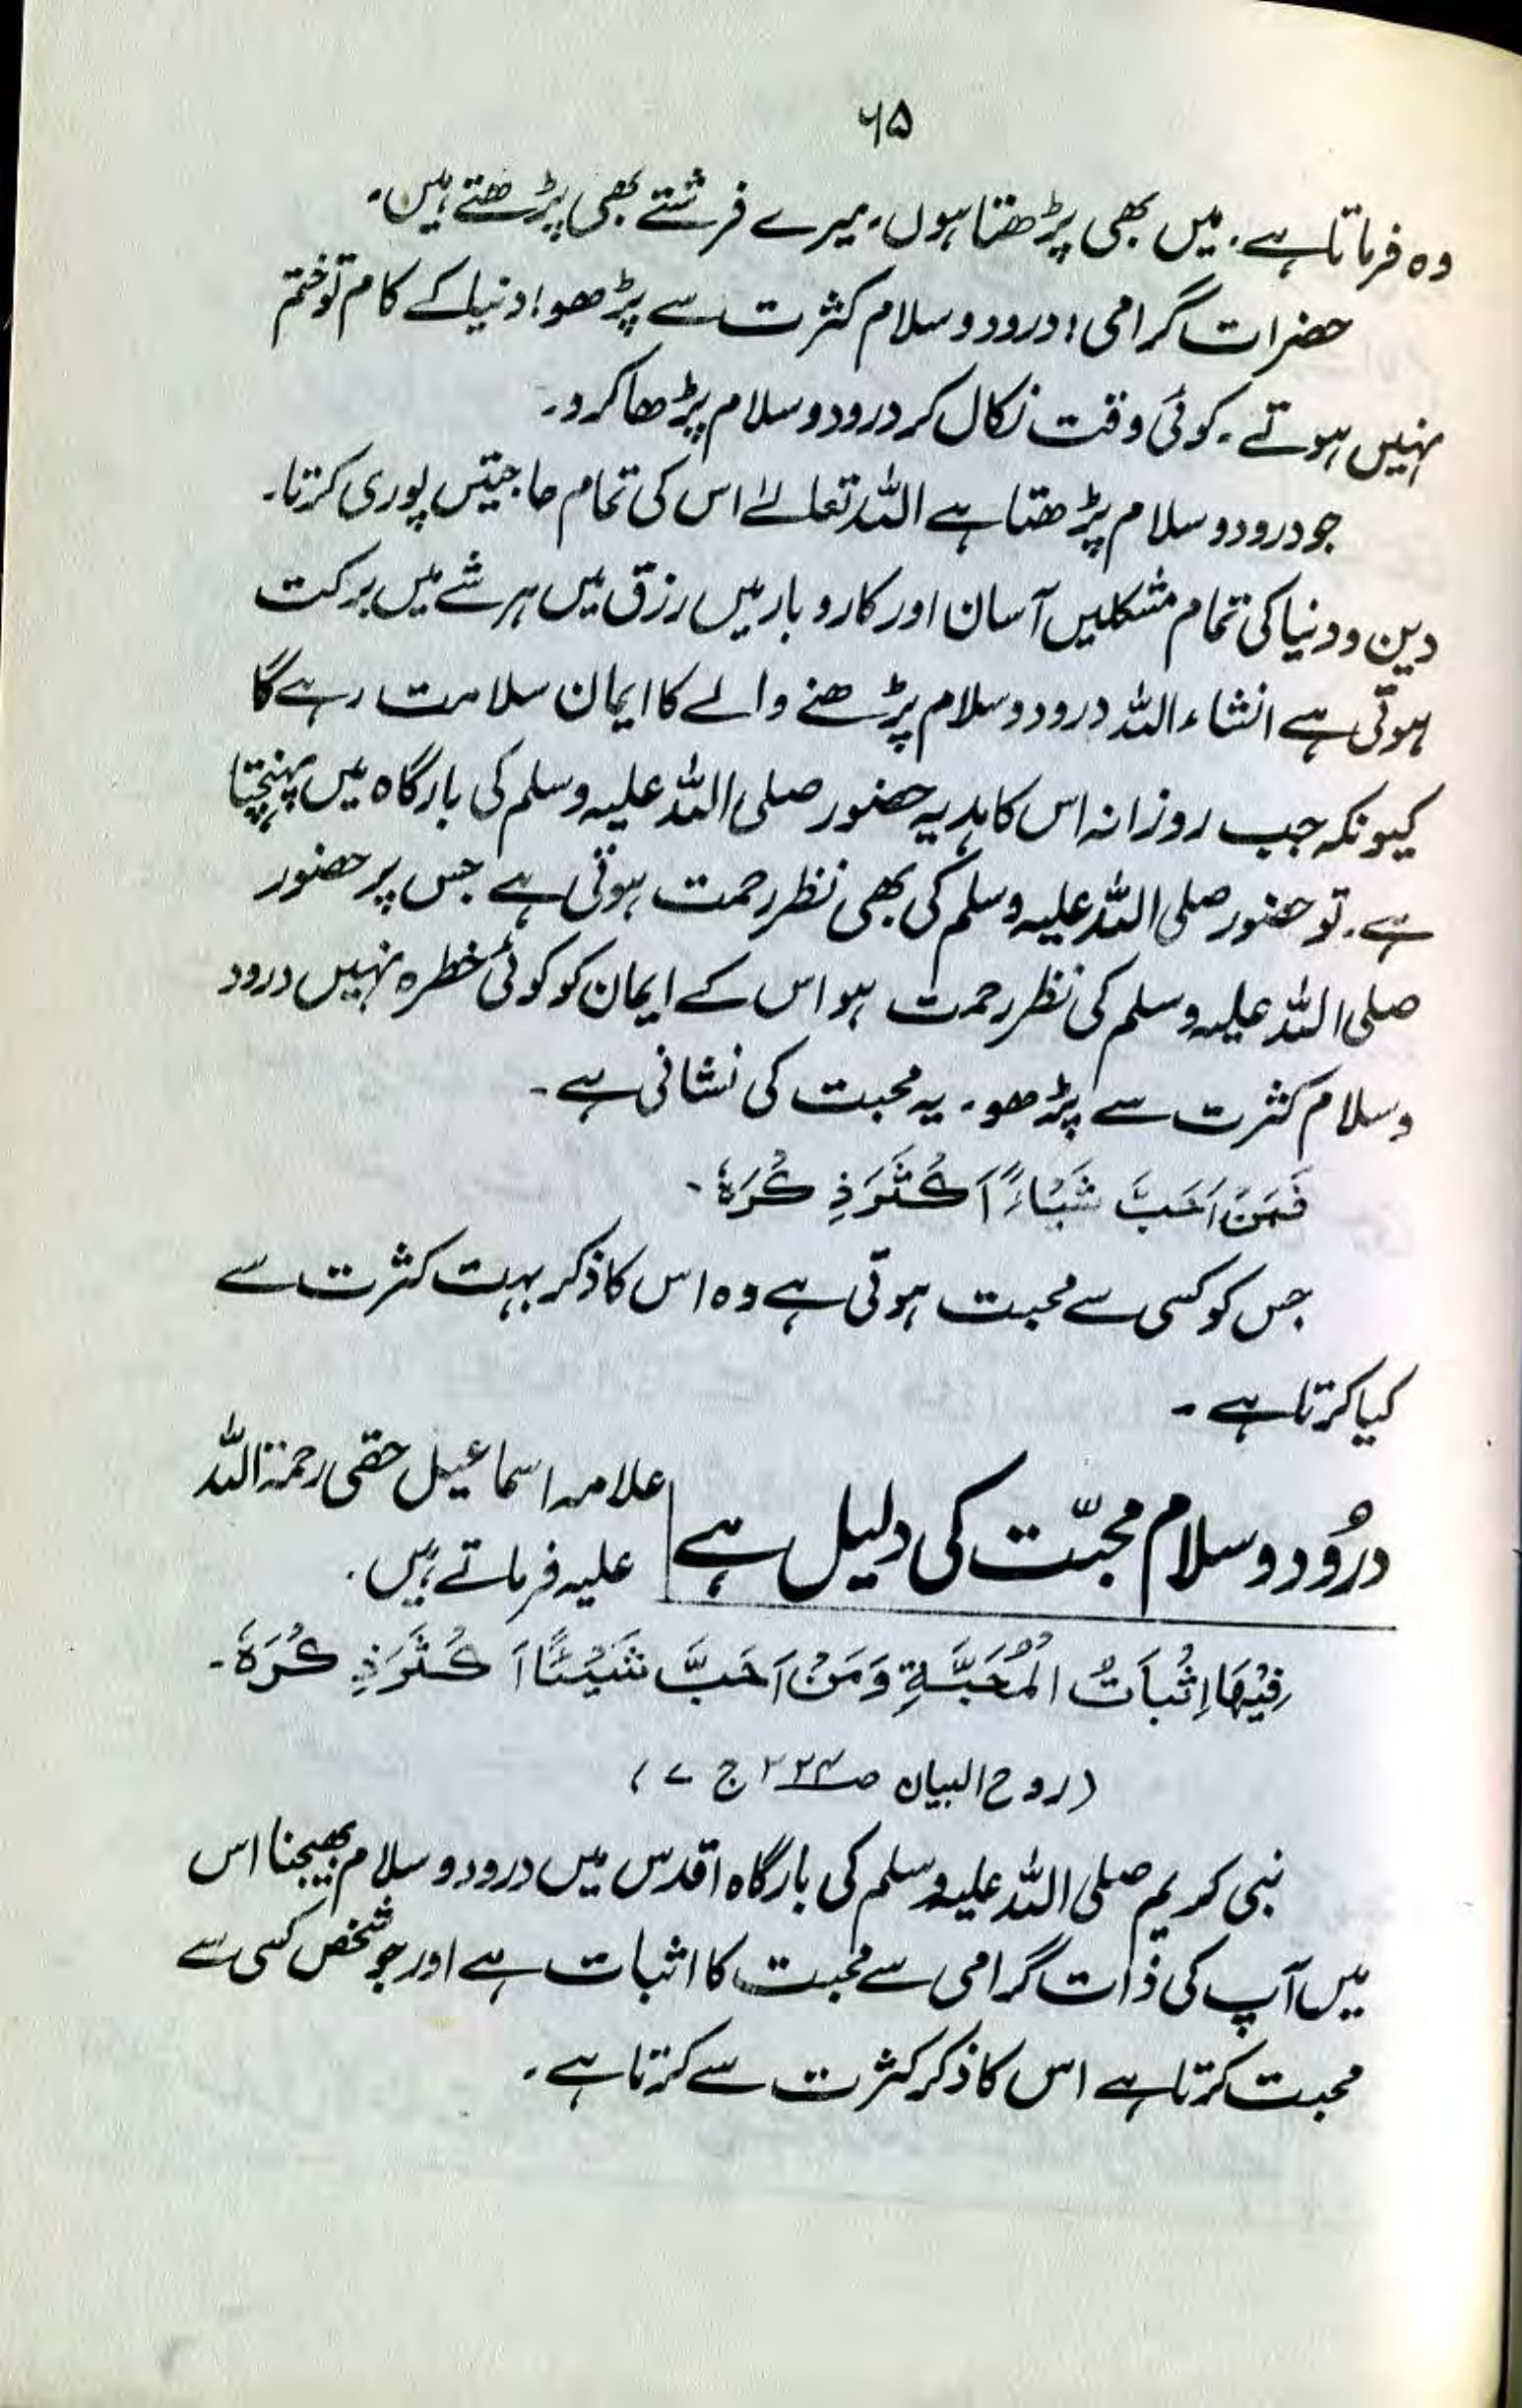 ۶۵
وہ فرماتا ہے۔ میں بھی پڑھتا ہوں۔ میرے فرشتے بھی پڑھتے ہیں۔
حضرات گرامی! درود و سلام کثرت سے پڑھو! دنیا کے کام تو ختم
نہیں ہوتے۔ کوئی وقت نکال کر درود و سلام پڑھا کرو۔
جو درود و سلام پڑھتا ہے اللہ تعالےٰ اس کی تمام حاجتیں پوری کرتا۔
دین و دنیا کی تمام مشکلیں آسان اور کاروبار میں رزق میں ہر شے میں برکت
ہوتی ہے انشاء اللہ درود و سلام پڑھنے والے کا ایمان سلامت رہے گا
کیونکہ جب روزانہ اس کا ہدیہ حضور صلی اللہ علیہ وسلم کی بارگاہ میں پہنچتا
ہے۔ تو حضور صلی اللہ علیہ وسلم کی بھی نظر رحمت ہوتی ہے جس پر حضور
صلی اللہ علیہ وسلم کی نظر رحمت ہو اس کے ایمان کو کوئی خطرہ نہیں درود
وسلام کثرت سے پڑھو۔ یہ محبت کی نشانی ہے۔
فَمَنْ اَحَبَّ شَیْاءً اَکْثَرَ ذِکْرَہٗ۔
جس کو کسی سے محبت ہوتی ہے وہ اس کا ذکر بہت کثرت سے
کیا کرتا ہے۔
درُود و سلام محبّت کی دلیل ہے علامہ اسماعیل حقی رحمۃ اللہ
علیہ فرماتے ہیں۔
فِیْھَا اِثْبَاتُ الْمُحَبَّۃِ وَمَنْ اَحَبَّ شَیْئًا اَکْثَرَ ذِکْرَہٗ۔
(روح البیان ص ۲۲۴ ج ۷)
نبی کریم صلی اللہ علیہ وسلم کی بارگاہ اقدس میں درود و سلام بھیجنا اس
میں آپ کی ذات گرامی سے محبت کا اثبات ہے اور جو شخص کسی سے
محبت کرتا ہے اس کا ذکر کثرت سے کرتا ہے۔